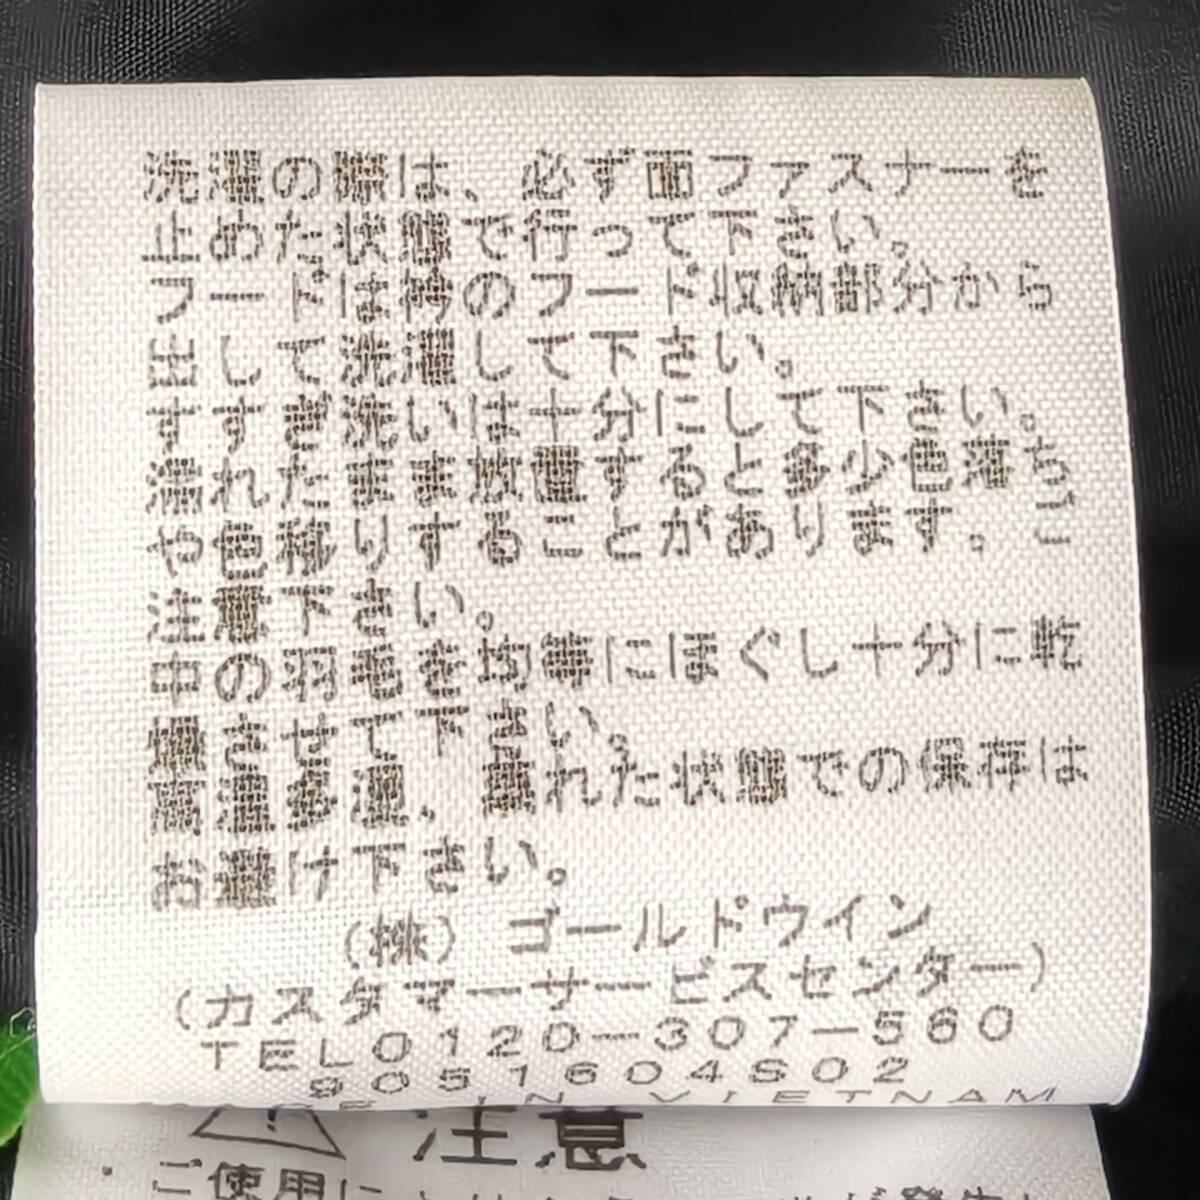 洗濯の際は、必ず面ファスナーを
止めた状態で行って下さい。
フードは衿のフード収納部分から
出して洗濯して下さい。
すすぎ洗いは十分にして下さい。
濡れたまま放置すると多少色落ち
や色移りすることがあります。ご
注意下さい。
中の羽毛を均等にほぐし十分に乾
燥させて下さい。
高温多湿、蒸れた状態での保存は
お避け下さい。
(株)ゴールドウイン
(カスタマーサービスセンター)
TEL0120-307-560
9051604S02
IN VIETNAM
注意
・ご使用に